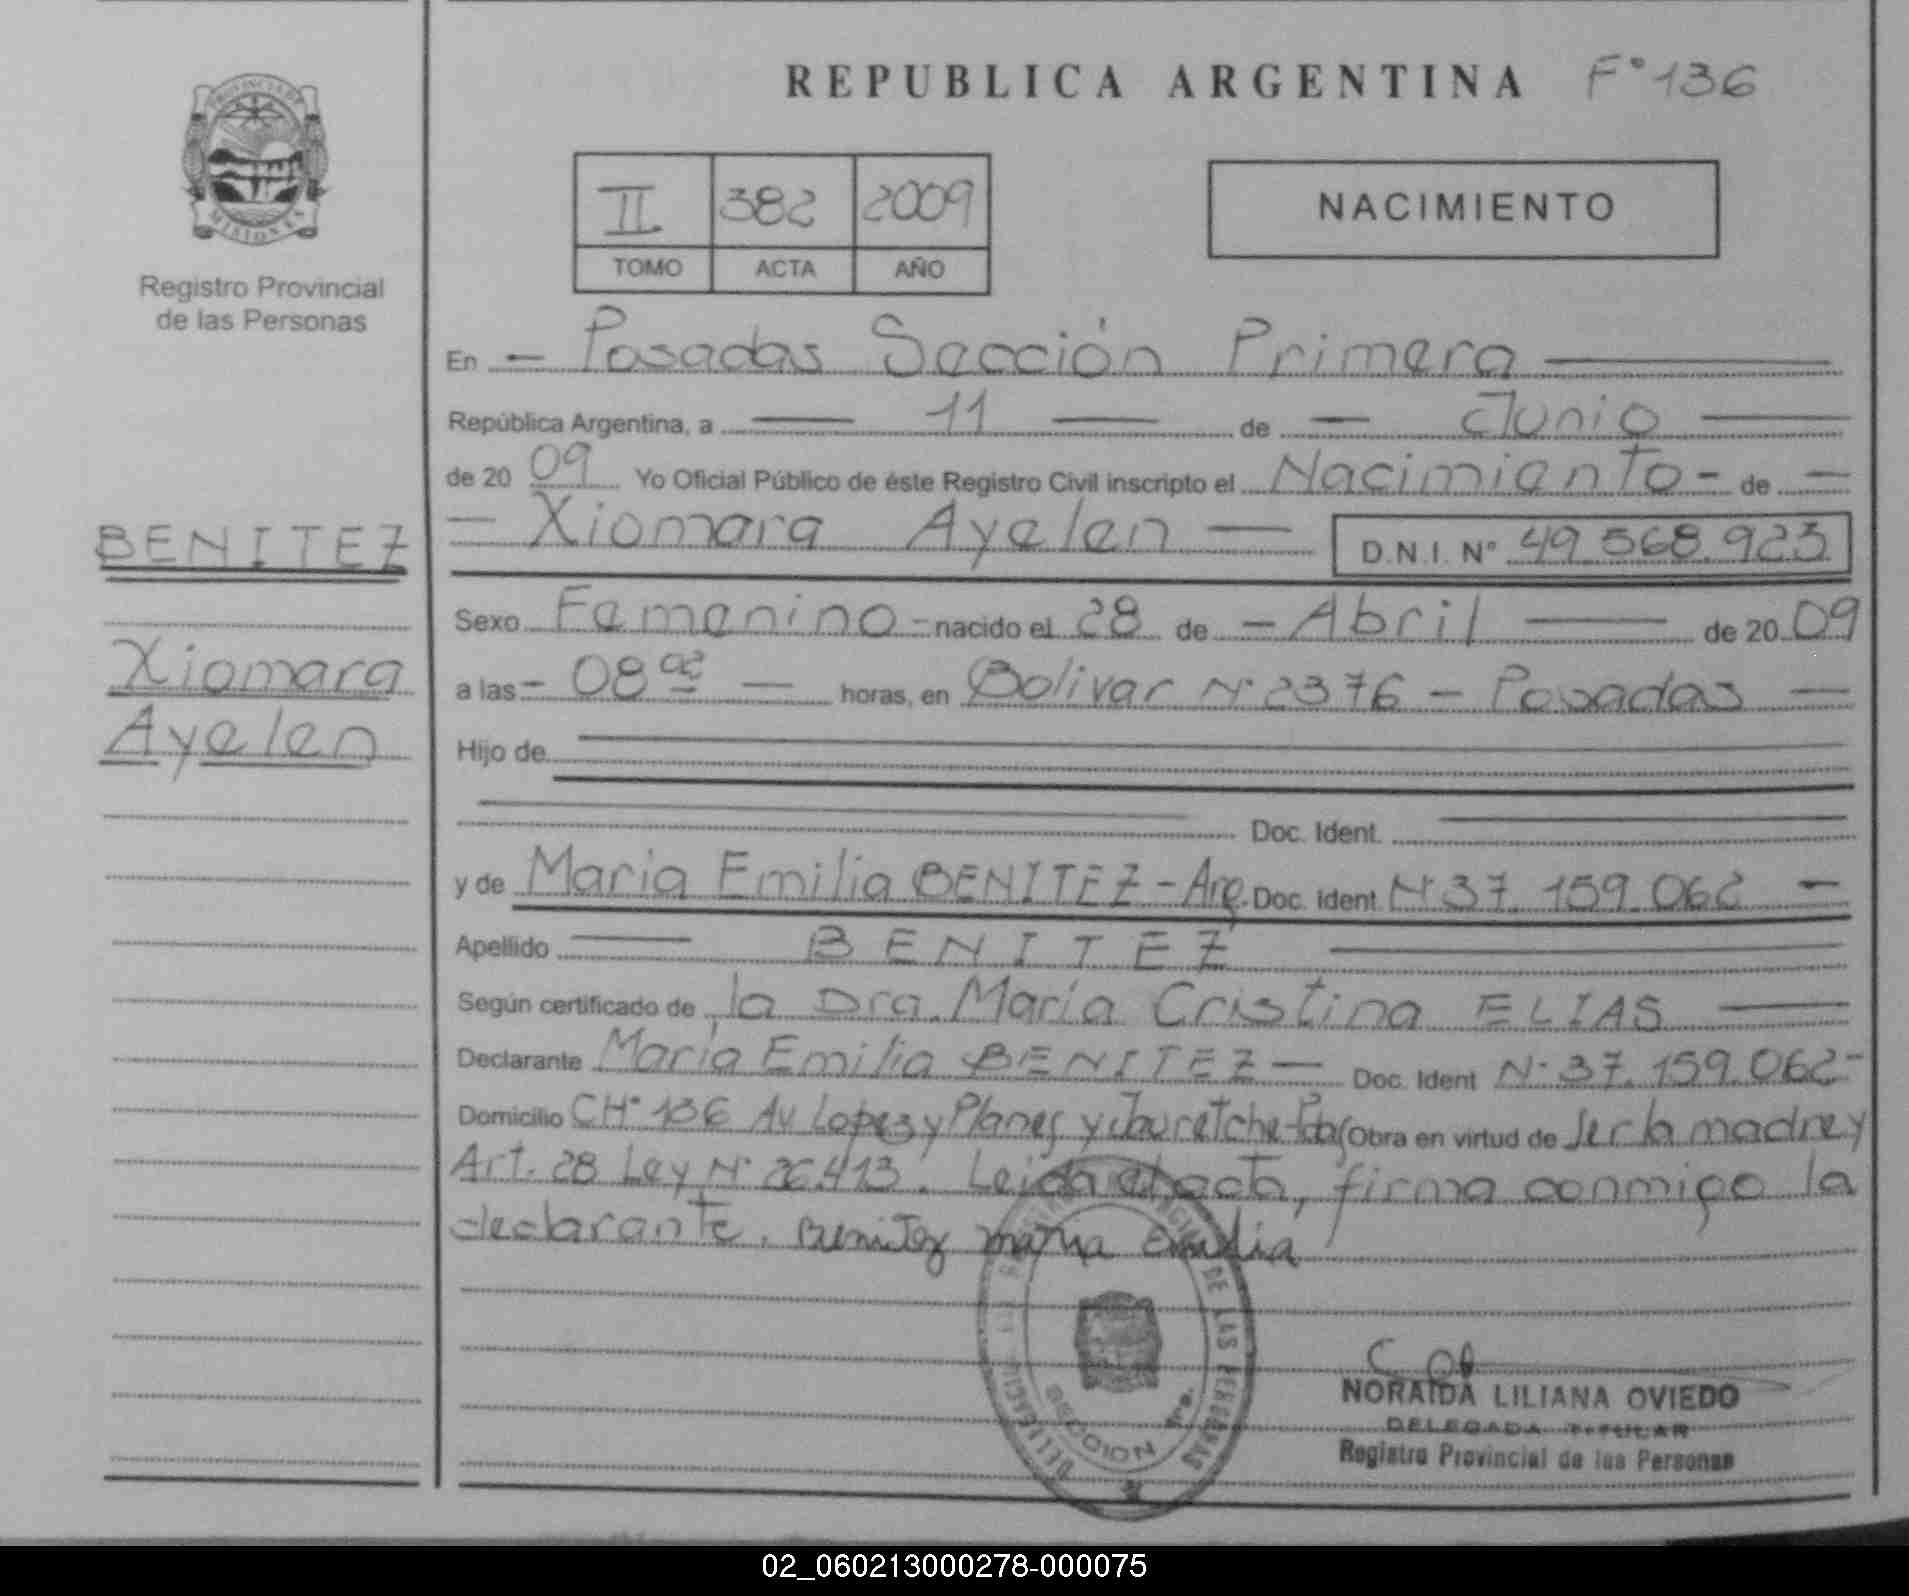 REPUBLICA ARGENTINA F° 136
PROVINCIA DE
MISIONES
Registro Provincial
de las Personas
II 382 2009
TOMO ACTA AÑO
NACIMIENTO
En - Posadas Sección Primera
República Argentina, a 11 de - Junio
de 20 09 Yo Oficial Público de éste Registro Civil inscripto el Nacimiento - de -
- Xiomara Ayelen - D.N.I. N° 49.568.923
BENITEZ
Xiomara
Ayelen
Sexo Femenino - nacido el 28 de - Abril - de 20 09
a las - 08 - horas, en Bolivar N° 2376 - Posadas -
Hijo de
Doc. Ident.
y de Maria Emilia BENITEZ - Arg. Doc. Ident. N° 37.159.062 -
Apellido BENITEZ
Según certificado de la Dra. María Cristina ELIAS
Declarante María Emilia BENITEZ - Doc. Ident N° 37.159.062 -
Domicilio CH° 136 Av Lopez y Planes y Jauretche Pdas Obra en virtud de ser la madre y
Art. 28 Ley N° 26.413. Leida el acta, firma conmigo la
declarante. Benitez maria Emilia
DE LAS PERSONAS
SECCION 1ra.
NORAIDA LILIANA OVIEDO
DELEGADA TITULAR
Registro Provincial de las Personas
02_060213000278-000075